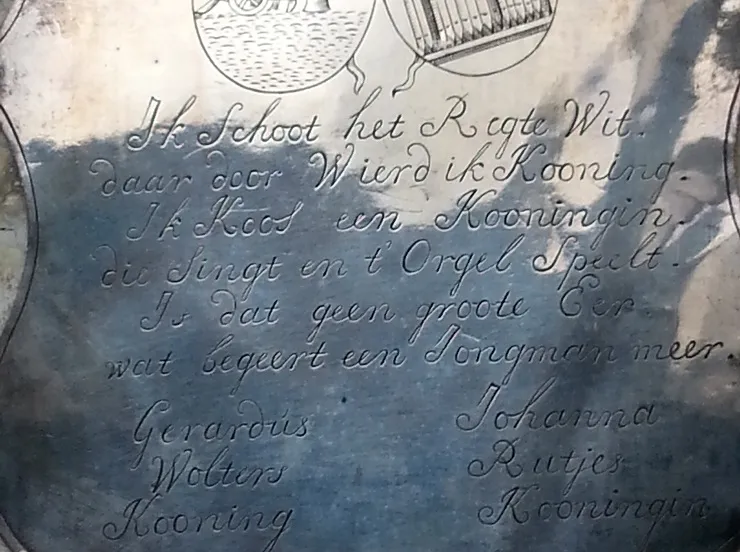 Ik Schoot het Regte Wit.
daar door Wierd ik Kooning.
Ik Koos een Kooningin.
die Singt en t' Orgel Speelt.
Is dat geen groote Eer.
wat begeert een Jongman meer.
Gerardus Johanna
Wolters Rutjes
Kooning Kooningin